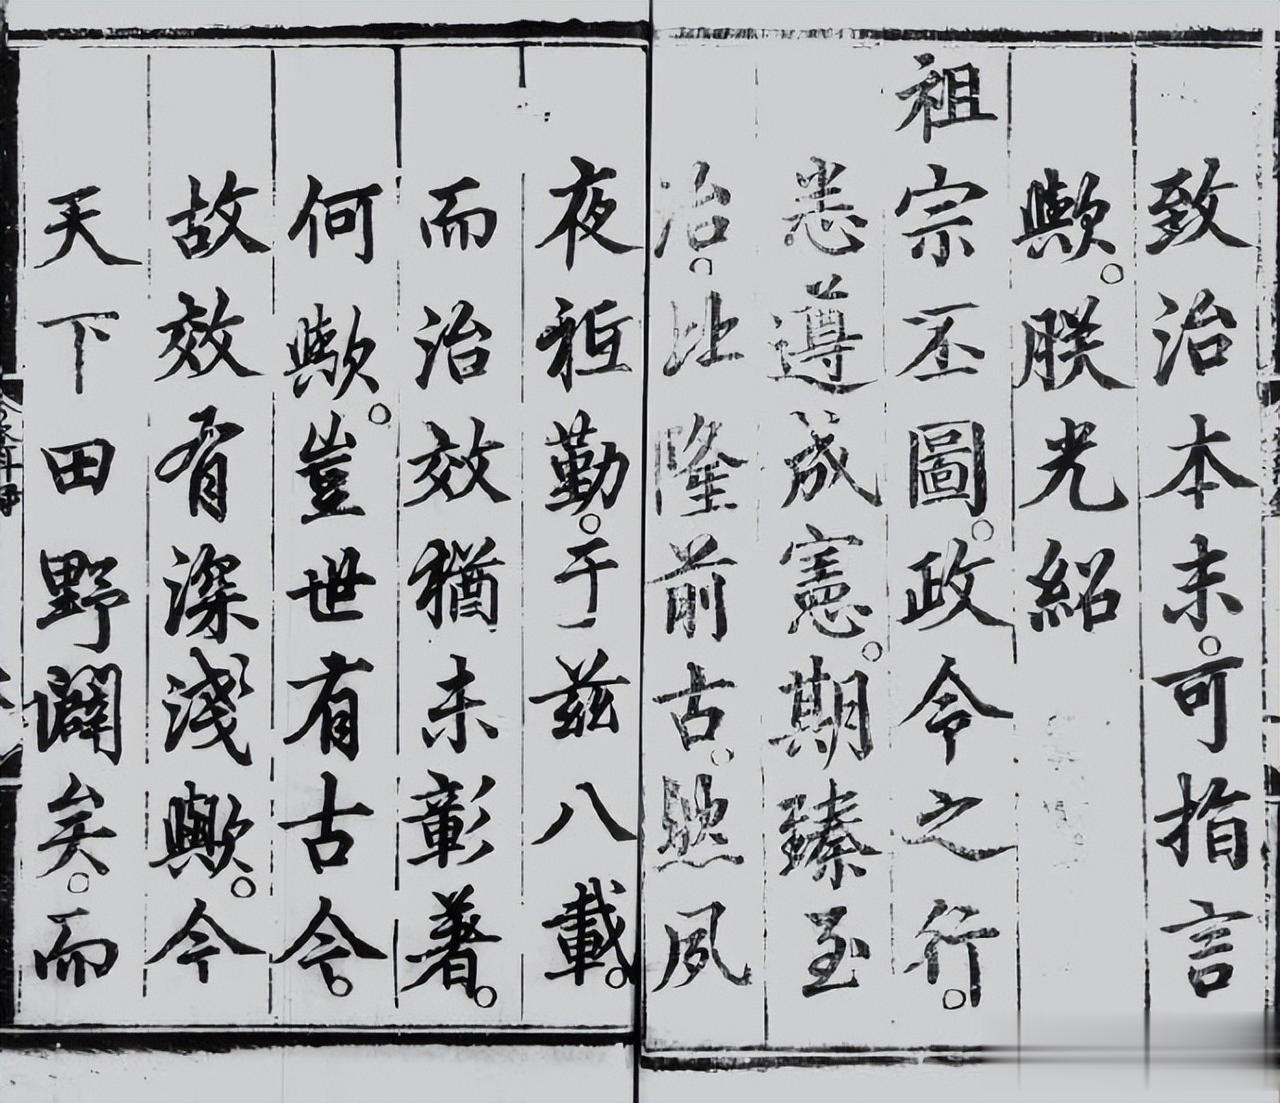 致治本末。可指言
歟。朕光紹
祖宗丕圖。政令之行。
悉遵成憲。期臻至
治。比隆前古。然夙
夜祗勤。于兹八載。
而治效猶未彰著。
何歟。豈世有古今。
故效有深淺歟。今
天下田野闢矣。而